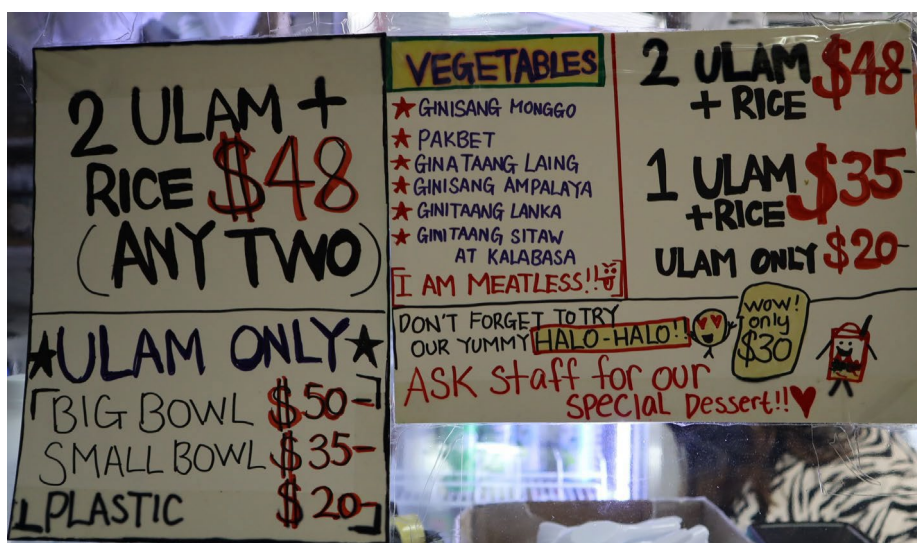 2 ULAM +
RICE $48
(ANY TWO)
★ULAM ONLY★
BIG BOWL $50-
SMALL BOWL $35-
PLASTIC $20-
VEGETABLES
★ GINISANG MONGGO
★ PAKBET
★ GINATAANG LAING
★ GINISANG AMPALAYA
★ GINITAANG LANKA
★ GINITAANG SITAW
AT KALABASA
[I AM MEATLESS!!]
2 ULAM $48-
+ RICE
1 ULAM $35-
+RICE
ULAM ONLY $20-
DON'T FORGET TO TRY
OUR YUMMY HALO-HALO!!
WOW!
only
$30
ASK Staff for our
SPECIAL Dessert!!♥